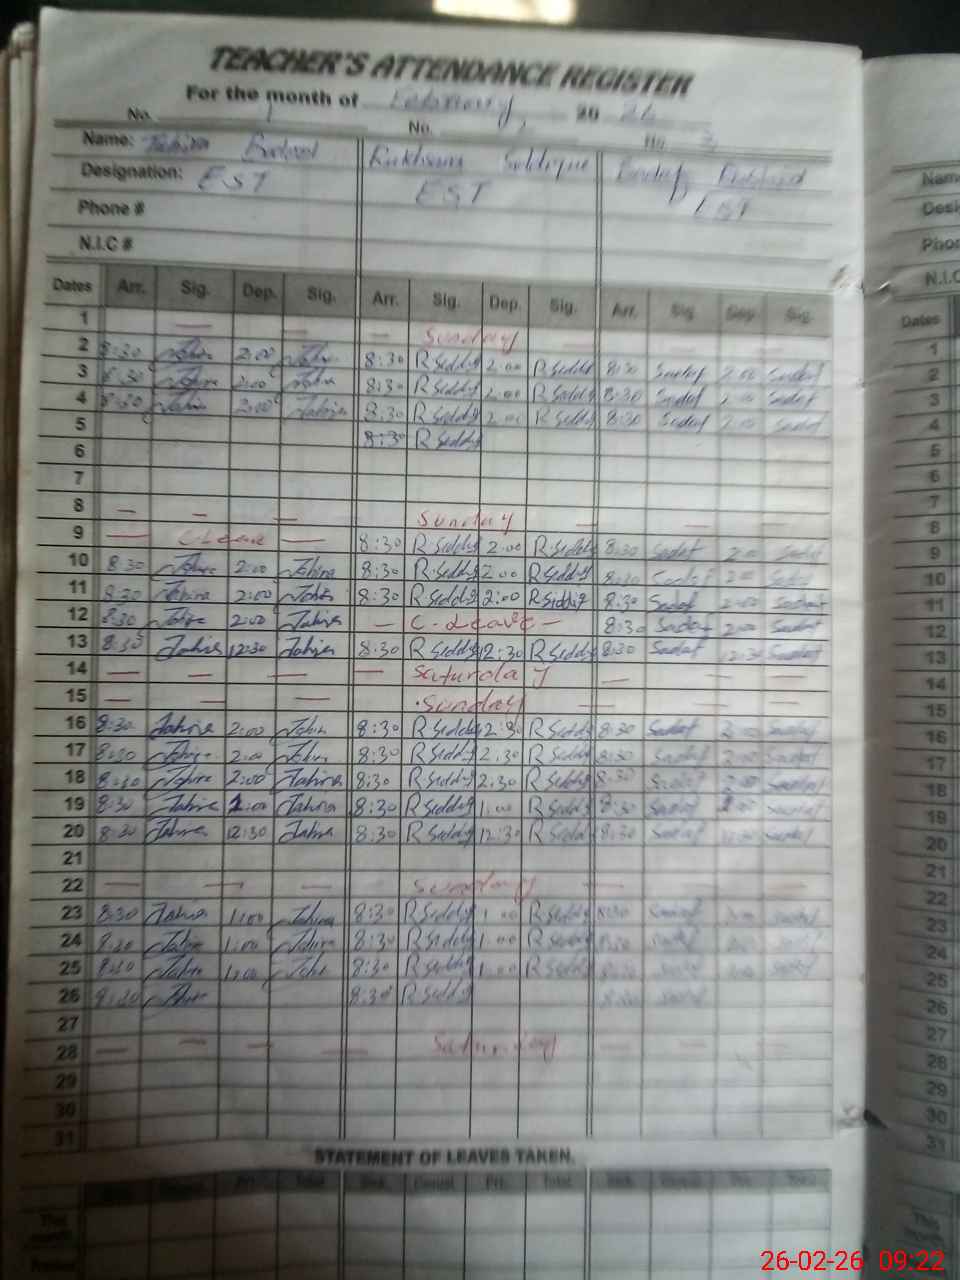 TEACHER'S ATTENDANCE REGISTER
For the month of February 20 26
No. 1 No. No. 3
Name: Tahira Rukhsana Siddique Sadaf
Designation: EST EST EST
Phone #
N.I.C #
Dates Arr. Sig. Dep. Sig. Arr. Sig. Dep. Sig. Arr. Sig. Dep. Sig.
1 — — — Sunday —
2 8:30 Tahira 2:00 Tahira 8:30 R Siddq 2:00 R Siddq 8:30 Sadaf 2:00 Sadaf
3 8:30 Tahira 2:00 Tahira 8:30 R Siddq 2:00 R Siddq 8:30 Sadaf 2:00 Sadaf
4 8:30 Tahira 2:00 Tahira 8:30 R Siddq 2:00 R Siddq 8:30 Sadaf 2:00 Sadaf
5 8:30 R Siddq
6
7
8 — — — Sunday — — —
9 — C Leave — 8:30 R Siddq 2:00 R Siddq 8:30 Sadaf 2:00 Sadaf
10 8:30 Tahira 2:00 Tahira 8:30 R Siddq 2:00 R Siddq 8:30 Sadaf 2:00 Sadaf
11 8:30 Tahira 2:00 Tahira 8:30 R Siddq 2:00 R Siddq 8:30 Sadaf 2:00 Sadaf
12 8:30 Tahira 2:00 Tahira — C. Leave — 8:30 Sadaf 2:00 Sadaf
13 8:30 Tahira 12:30 Tahira 8:30 R Siddq 12:30 R Siddq 8:30 Sadaf 12:30 Sadaf
14 — — — — Saturday — — — —
15 — — — Sunday — — —
16 8:30 Tahira 2:00 Tahira 8:30 R Siddq 2:30 R Siddq 8:30 Sadaf 2:00 Sadaf
17 8:30 Tahira 2:00 Tahira 8:30 R Siddq 2:30 R Siddq 8:30 Sadaf 2:00 Sadaf
18 8:30 Tahira 2:00 Tahira 8:30 R Siddq 2:30 R Siddq 8:30 Sadaf 2:00 Sadaf
19 8:30 Tahira 1:00 Tahira 8:30 R Siddq 1:00 R Siddq 8:30 Sadaf 1:00 Sadaf
20 8:30 Tahira 12:30 Tahira 8:30 R Siddq 12:30 R Siddq 8:30 Sadaf 12:30 Sadaf
21
22 — — — Sunday — — —
23 8:30 Tahira 1:00 Tahira 8:30 R Siddq 1:00 R Siddq 8:30 Sadaf Sadaf
24 8:30 Tahira 1:00 Tahira 8:30 R Siddq 1:00 R Siddq 8:30 Sadaf Sadaf
25 8:30 Tahira 1:00 Tahira 8:30 R Siddq 1:00 R Siddq 8:30 Sadaf Sadaf
26 8:30 Tahira 8:30 R Siddq 8:30 Sadaf
27
28 — — — — Saturday — — —
29
30
31
STATEMENT OF LEAVES TAKEN.
Sick Casual Prt. Total Sick Casual Prt. Total Sick Casual Prt. Total
This
month
Name
Desi
Phon
N.I.C
Dates
1
2
3
4
5
6
7
8
9
10
11
12
13
14
15
16
17
18
19
20
21
22
23
24
25
26
27
28
29
30
31
This
26-02-26 09:22